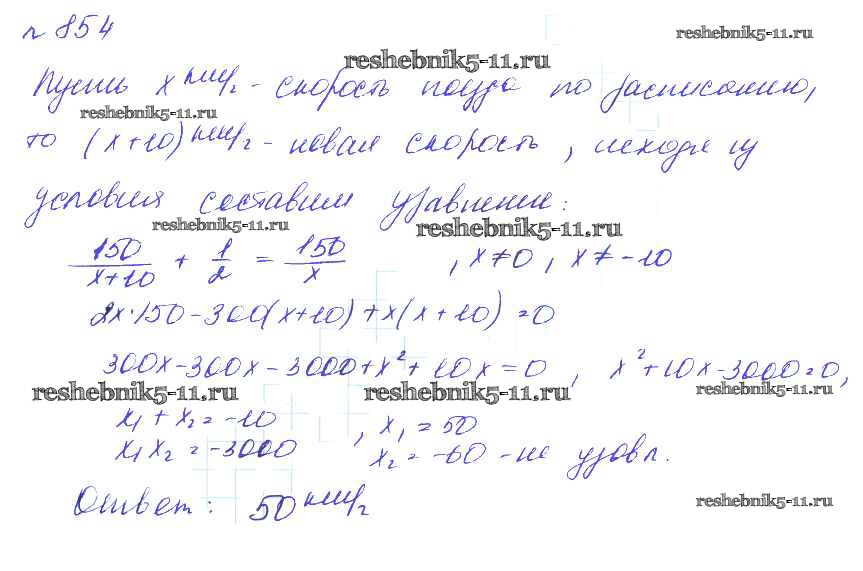 № 854
reshebnik5-11.ru
reshebnik5-11.ru
Пусть x км/ч - скорость поезда по расписанию,
reshebnik5-11.ru
то (x+10) км/ч - новая скорость, исходя из
условия составим уравнение:
reshebnik5-11.ru
reshebnik5-11.ru
150/(x+10) + 1/2 = 150/x , x≠0, x≠-10
2x·150-300(x+10)+x(x+10)=0
300x-300x-3000+x²+10x=0, x²+10x-3000=0,
reshebnik5-11.ru
reshebnik5-11.ru
reshebnik5-11.ru
x₁+x₂=-10
x₁x₂=-3000 , x₁=50
x₂=-60 - не удовл.
Ответ: 50 км/ч
reshebnik5-11.ru